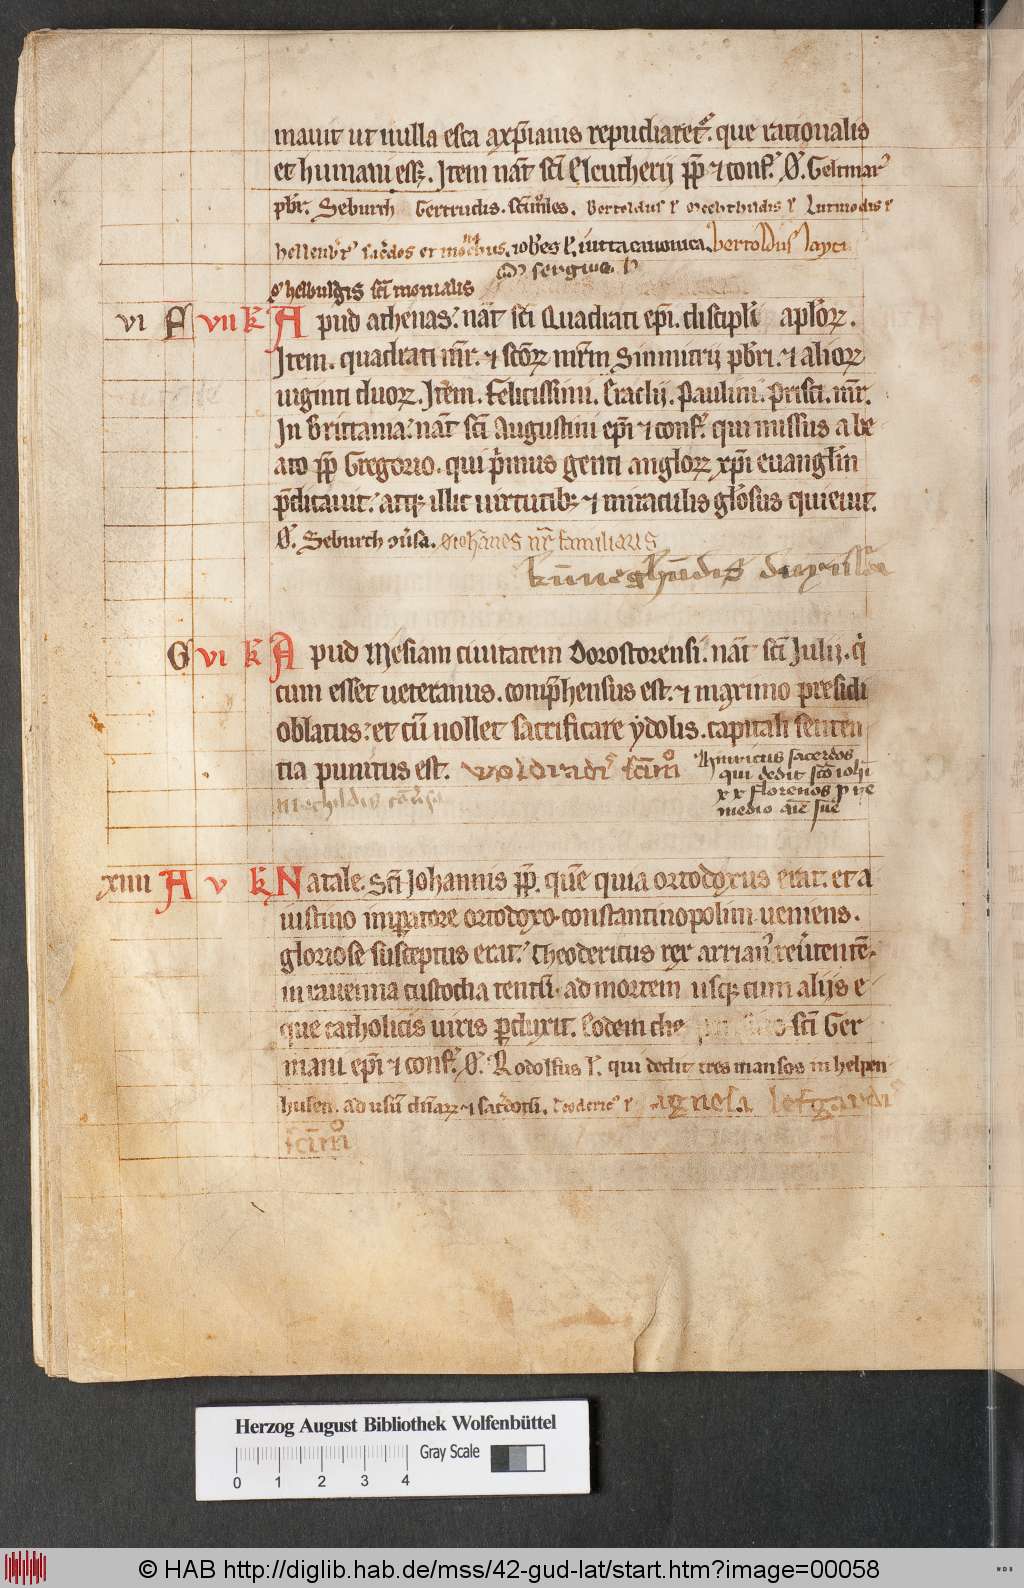 mauit ut nulla esca axp̄ianis repudiaretᷣ. que rationalis
et humani esꝫ. Item nat̄ sc̄i Eleutherij pp̄ ⁊ conf. O. Geltmarꝰ
pbr̄. Seburch Gertrudis. sc̄im̄les. Bertoldus l' Mechthildis l' Lutmodis l'
sac̄dos et mōchus. ioh̄es l'. iutta canonica. bertoldus layci
O sergius. l'
O helburgis sc̄i monialis
vi F vii k̄ Apud athenas. nat̄ sc̄i Quadrati ep̄i. discipl'i apl'oꝝ.
Item. quadrati mr̄. ⁊ sc̄oꝝ mr̄m Simmitrij pbr̄i. ⁊ alioꝝ
uiginti duoꝝ. Item. Felicissimi. Eraclij. Paulini. Prisci. mr̄.
In Brittania. nat̄ sc̄i Augustini ep̄i ⁊ conf. qui missus a be
ato pp̄ Gregorio. qui p̄mus genti angloꝝ xp̄i euangl'm
p̄dicauit. atqꝫ illic uirtutibꝫ ⁊ miraculis gl'osus quieuit.
O. Seburch ꝯu̓sa. Johānes nr̄ familiaris
kūneghūdis
G vi k̄ Apud Mesiam ciuitatem Dorostorensi. nat̄ sc̄i Julij. q̓
cum esset ueteranus. comp̄hensus est. ⁊ maximo presidi
oblatus. et cū nollet sacrificare ydolis. capitali senten
tia punitus est. woldradis sc̄im̄o Henricus sacerdos
qui dedit sc̄o ioh̄i
Mechildis x x florenos p re
medio aīe sue
xiiii A v k̄ Natale. Sc̄i Johannis pp̄. quē quia ortodoxus erat. et a
iustino imꝑatore ortodoxo. constantinopolim ueniens.
gloriose susceptus erat. Theodericus rex arrianꝰ reu̓tentē.
in rauenna custodia tentū. ad mortem usqꝫ cum alijs e
que catholicis uiris ꝑduxit. Eodem die sc̄i Ger
mani ep̄i ⁊ conf. O. Rodolfus l'. qui dedit tres mansos in helpen
husen. ad usū dn̄aꝝ ⁊ sac̄dotū. teoderic' l' agnesa lefgardis
sc̄im̄o
Herzog August Bibliothek Wolfenbüttel
Gray Scale
0 1 2 3 4
© HAB http://diglib.hab.de/mss/42-gud-lat/start.htm?image=00058